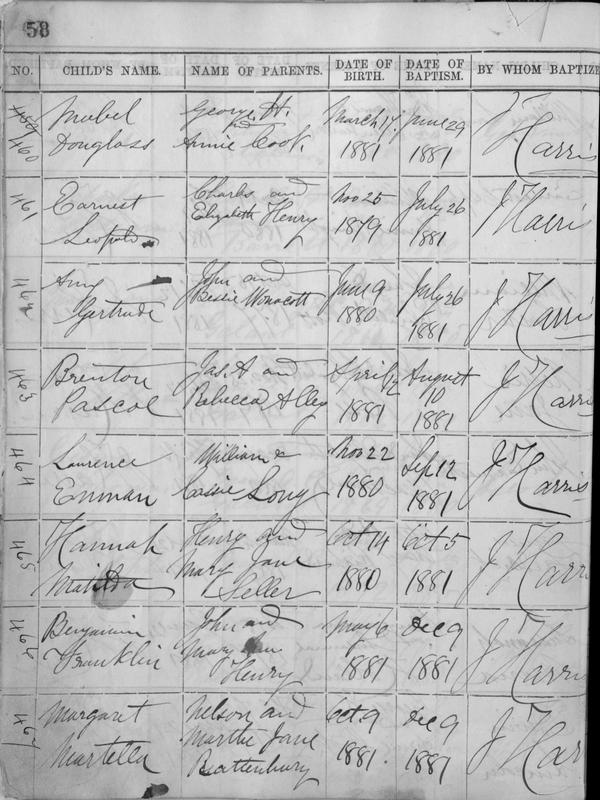 58
NO. CHILD'S NAME. NAME OF PARENTS. DATE OF BIRTH. DATE OF BAPTISM. BY WHOM BAPTIZE
460 Mabel George H. March 17. June 29 J T
Douglass and Annie Cook 1881 1881 Harris
461 Earnest Charles and Nov 25 July 26 J Harris
Leopold Elizabeth Henry 1879 1881
462 Amy John and June 9 July 26 J T Harris
Gertrude Bessie Wonacott 1880 1881
463 Brenton Jas. A and April 12 August 10 J T Harris
Pascoe Rebecca Alley 1881 1881
464 Laurence William & Nov 22 Sep 12 J T Harris
Emman Cassie Long 1880 1881
465 Hannah Henry and Oct 14 Oct 5 J T Harri
Matilda Mary Jane 1880 1881
Seller
466 Benjamin John and May 6 Dec 9 J T Harri
Franklin Mary Ann 1881 1881
Henry
467 Margaret Nelson and Oct 9 Dec 9 J T Har
Martella Martha Jane 1881. 1881
Brattenbury